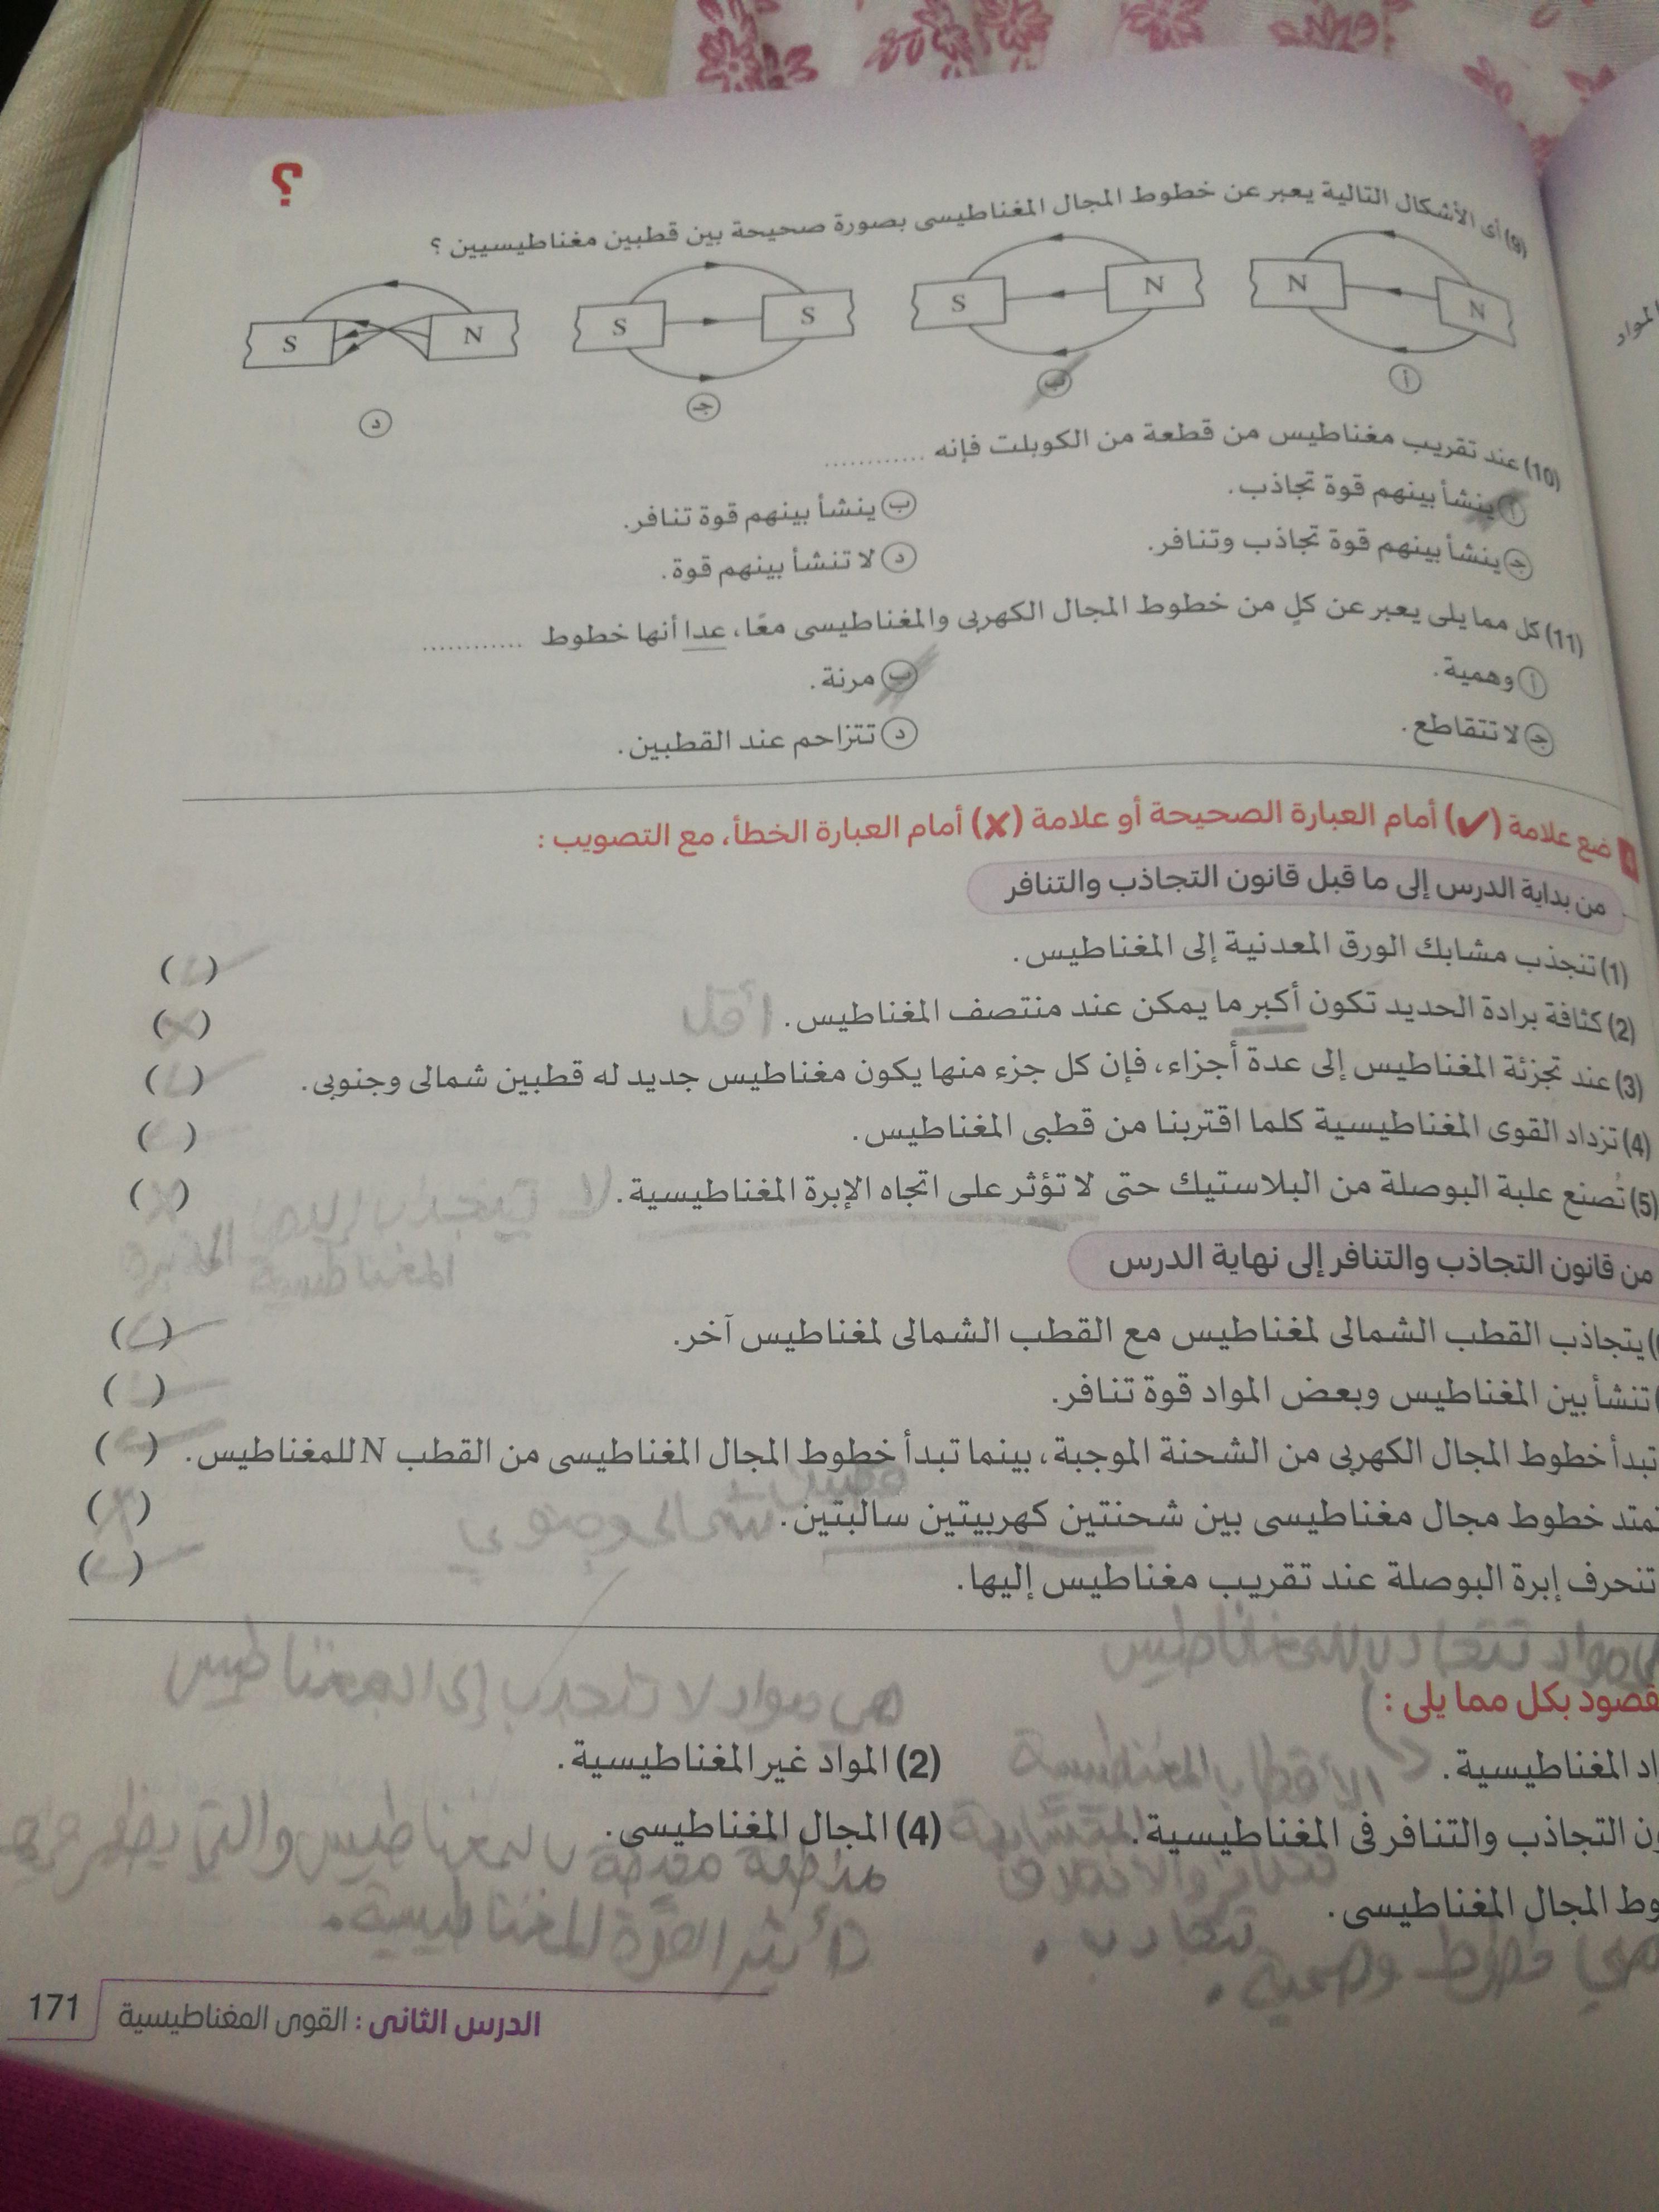 ؟
(9) أى الأشكال التالية يعبر عن خطوط المجال المغناطيسى بصورة صحيحة بين قطبين مغناطيسيين ؟
N N
S N
S S
S N
أ
ب
ج
د
(10) عند تقريب مغناطيس من قطعة من الكوبلت فإنه ............
أ ينشأ بينهم قوة تجاذب.
ب ينشأ بينهم قوة تنافر.
ج ينشأ بينهم قوة تجاذب وتنافر.
د لا تنشأ بينهم قوة.
(11) كل مما يلى يعبر عن كلٍ من خطوط المجال الكهربى والمغناطيسى معًا، عدا أنها خطوط ............
أ وهمية.
ب مرنة.
ج لا تتقاطع.
د تتزاحم عند القطبين.
ضع علامة (✔) أمام العبارة الصحيحة أو علامة (✘) أمام العبارة الخطأ، مع التصويب :
من بداية الدرس إلى ما قبل قانون التجاذب والتنافر
(1) تنجذب مشابك الورق المعدنية إلى المغناطيس. ( )
(2) كثافة برادة الحديد تكون أكبر ما يمكن عند منتصف المغناطيس. أقل (✗)
(3) عند تجزئة المغناطيس إلى عدة أجزاء، فإن كل جزء منها يكون مغناطيس جديد له قطبين شمالى وجنوبى. (✓)
(4) تزداد القوى المغناطيسية كلما اقتربنا من قطبى المغناطيس. (✓)
(5) تُصنع علبة البوصلة من البلاستيك حتى لا تؤثر على اتجاه الإبرة المغناطيسية. (✗)
لا
المغناطيسية
من قانون التجاذب والتنافر إلى نهاية الدرس
) يتجاذب القطب الشمالى لمغناطيس مع القطب الشمالى لمغناطيس آخر. (✓)
تنشأ بين المغناطيس وبعض المواد قوة تنافر. (✓)
تبدأ خطوط المجال الكهربى من الشحنة الموجبة، بينما تبدأ خطوط المجال المغناطيسى من القطب N للمغناطيس. (✓)
تمتد خطوط مجال مغناطيسى بين شحنتين كهربيتين سالبتين. (✗)
قطبين شمالى وجنوبي
تنحرف إبرة البوصلة عند تقريب مغناطيس إليها. (✓)
مواد تنجذب للمغناطيس
هي مواد لا تنجذب إلى المغناطيس
قصود بكل مما يلى :
اد المغناطيسية.
(2) المواد غير المغناطيسية.
الأقطاب المغناطيسية
ون التجاذب والتنافر فى المغناطيسية.
المتشابهة
(4) المجال المغناطيسى.
تتنافر والاختلاف
تتجاذب.
منطقة محيطة بالمغناطيس والتي يظهر فيها
تأثير القوة المغناطيسية.
وط المجال المغناطيسى.
هي خطوط وهمية.
الدرس الثانى : القوى المغناطيسية
171